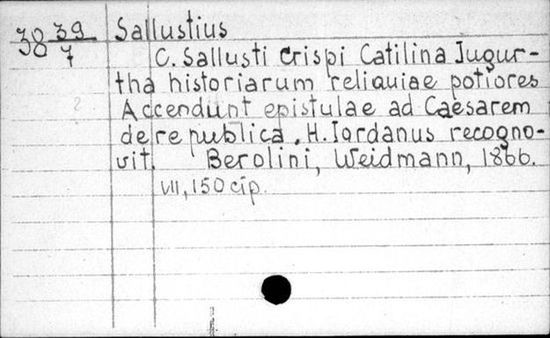 38 39/7 Sallustius
C. Sallusti Crispi Catilina Jugur-
tha historiarum reliquiae potiores
Accendunt epistulae ad Caesarem
de re publica. H. Iordanus recogno-
vit. Berolini, Weidmann, 1866.
VII, 150 с ip.